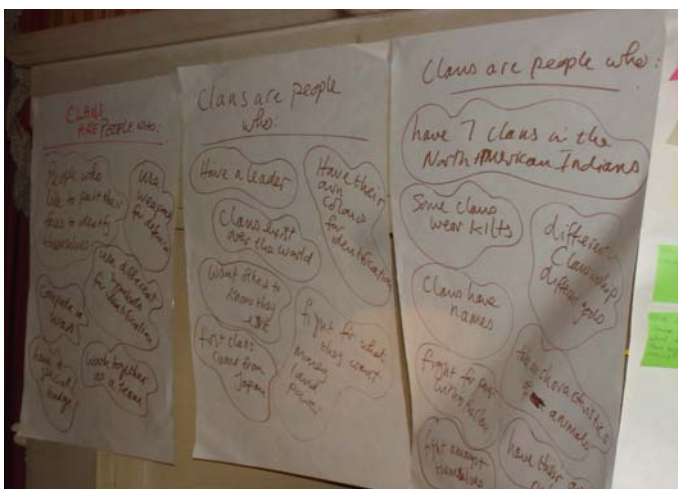 CLANS
ARE PEOPLE who:
People who
like to paint their
faces to identify
themselves
use
weapons
for defence
use different
for identification
Compete in
wars
have a
special
badge
work together
as a team
Clans are people
who:
Have a leader
Have their
own
colours
for identification
Clans exist
over the world
want others to
know they
exist
first clans
came from
Japan
fight for what
they want
money
land
power
Clans are people who:
have 7 clans in the
North American Indians
Some clans
wear kilts
different
Clanship
different gods
Clans have
names
characteristics
of animals
fight for
fight amongst
themselves
have their own